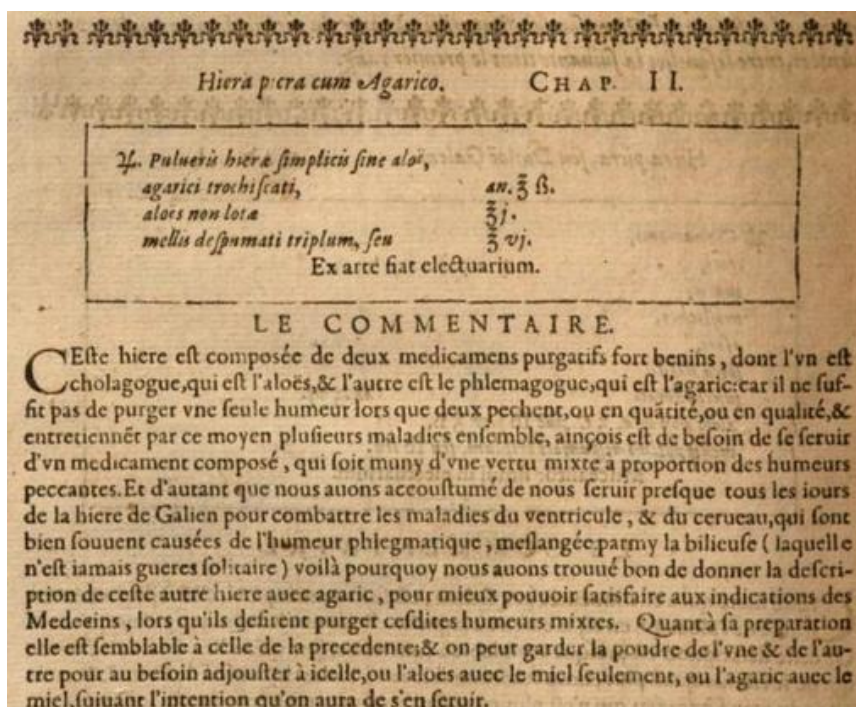 Hiera picra cum Agarico. CHAP. II.
℞. Pulueris hieræ ſimplicis ſine aloë,
agarici trochiſcati, an. ℥ ß.
aloës non lotæ ℥j.
mellis deſpumati triplum, ſeu ℥ vj.
Ex arte fiat electuarium.
LE COMMENTAIRE.
CEſte hiere eſt compoſée de deux medicamens purgatifs fort benins, dont l'vn eſt
cholagogue,qui eſt l'aloës,& l'autre eſt le phlemagogue,qui eſt l'agaric:car il ne ſuf-
fit pas de purger vne ſeule humeur lors que deux pechent,ou en quãtité,ou en qualité,&
entretiennẽt par ce moyen pluſieurs maladies enſemble, ainçois eſt de beſoin de ſe ſeruir
d'vn medicament compoſé, qui ſoit muny d'vne vertu mixte a proportion des humeurs
peccantes.Et d'autant que nous auons accouſtumé de nous ſeruir preſque tous les iours
de la hiere de Galien pour combattre les maladies du ventricule, & du cerueau,qui ſont
bien ſouuent cauſées de l'humeur phlegmatique, meſlangée parmy la bilieuſe ( laquelle
n'eſt iamais gueres ſolitaire ) voilà pourquoy nous auons trouué bon de donner la deſcri-
ption de ceſte autre hiere auec agaric, pour mieux pouuoir ſatisfaire aux indications des
Medecins, lors qu'ils deſirent purger ceſdites humeurs mixtes. Quant à ſa preparation
elle eſt ſemblable à celle de la precedente;& on peut garder la poudre de l'vne & de l'au-
tre pour au beſoin adjouſter à icelle,ou l'aloës auec le miel ſeulement, ou l'agaric auec le
miel,ſuiuant l'intention qu'on aura de s'en ſeruir.